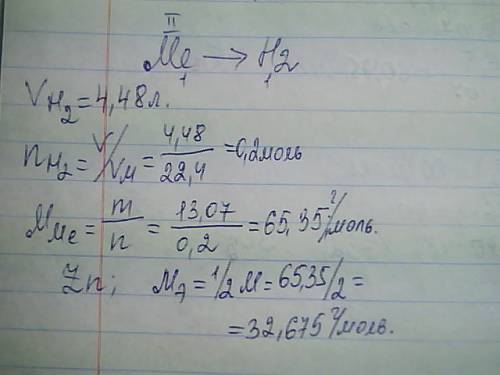 II
Me → H2
1 1
VH2 = 4,48 л.
nH2 = V/VM = 4,48/22,4 = 0,2 моль
MMe = m/n = 13,07/0,2 = 65,35 г/моль.
Zn; MЭ = 1/2 M = 65,35/2 =
= 32,675 г/моль.